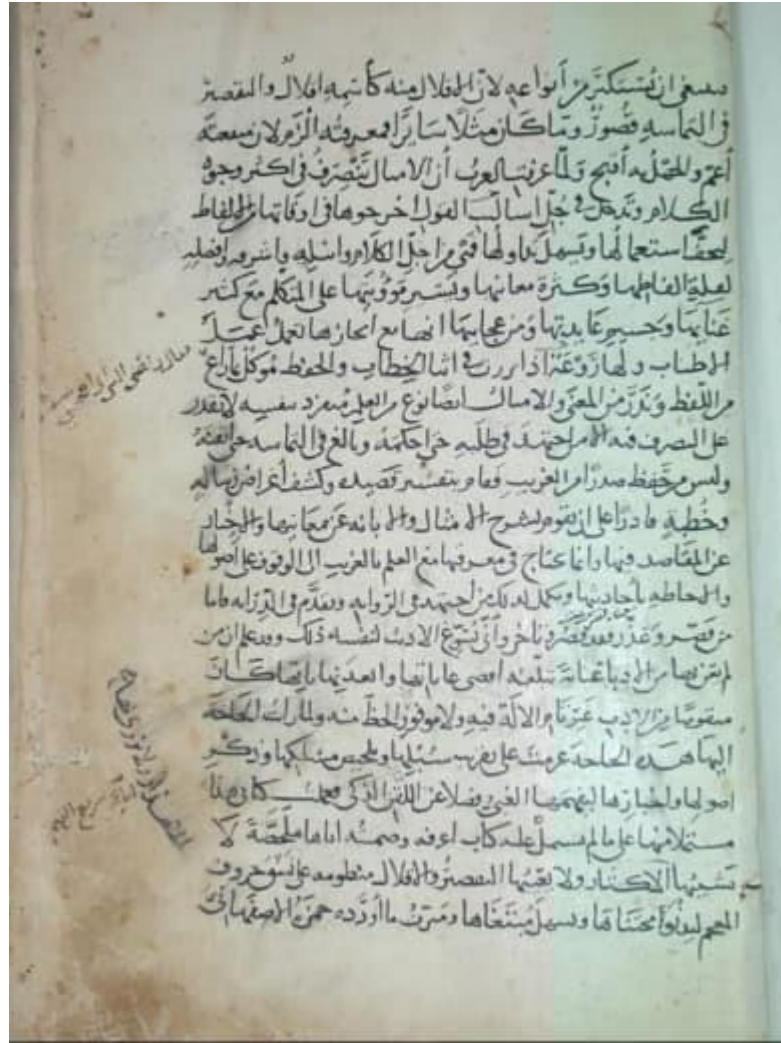 فينبغي ان يستكثر من أنواعه لان الاقلال منه كأسمه اقلال والتقصير
في التماسه قصور وما كان مثلا سائرا فمعرفته ألزم لان منفعته
أعم والجهل به أقبح ولما عرفت العرب أن الامثال تتصرف في اكثر وجوه
الكلام وتدخل في جل اساليب القول اخرجوها في اوقاتها من الالفاظ
ليخف استعمالها ويسهل تداولها فهي من اجل الكلام وانبله واشرفه وافضله
لقلة الفاظها وكثرة معانيها ويسير مؤونتها على المتكلم مع كثير
عنايتها وجسيم عايدتها ومن عجايبها انها مع ايجازها تعمل عمل
الاطناب ولها روعة اذا برزت في اثنا الخطاب والحفظ موكل بما راع
من اللفظ وندر من المعنى والامثال ايضا نوع من العلم منفرد بنفسه لا يقدر
على التصرف فيه الا من اجتهد في طلبه حتى احكمه وبالغ في التماسه حتى اتقنه
وليس من حفظ صدرا من الغريب فقام بتفسير قصيده وكشف أغراض رساله
وخطبة قادرا على ان يقوم بشرح الامثال والابانه عن معانيها والاخبار
عن المقاصد فيها وانما يحتاج في معرفتها مع العلم بالغريب الى الوقوف على أصولها
والاحاطه بأحاديثها ويكمل لذلك من أجتهد في الروايه وتقدم في الدرايه فاما
من قصر وعذر فقد قصر وتأخر وأنى يسوغ الاديب لنفسه ذلك وقد علم ان من
لم يعن بها من الادبا عناية تبلغه اقصى غاياتها وابعد نهاياتها كان
منقوصا من الادب غير تام الالة فيه ولا موفور الحظ منه ولما رأيت الحاجة
اليها هذه الحاجة عزمت على تقريب سبلها وتلخيص مشكلها وذكر
اصولها واخبارها ليفهمها الغبي فضلا عن اللقن الذكي فعملت كتابي هذا
مشتملا منها على ما لم يشتمل عليه كتاب اعرفه وضمنته اياها ملخصة لا
يشينها الاكثار ولا يعيبها التقصير والاقلال منظومه على نسق حروف
المعجم ليدنو مجتناها ويسهل مبتغاها وميزت ما أورده حمزة الاصفهاني